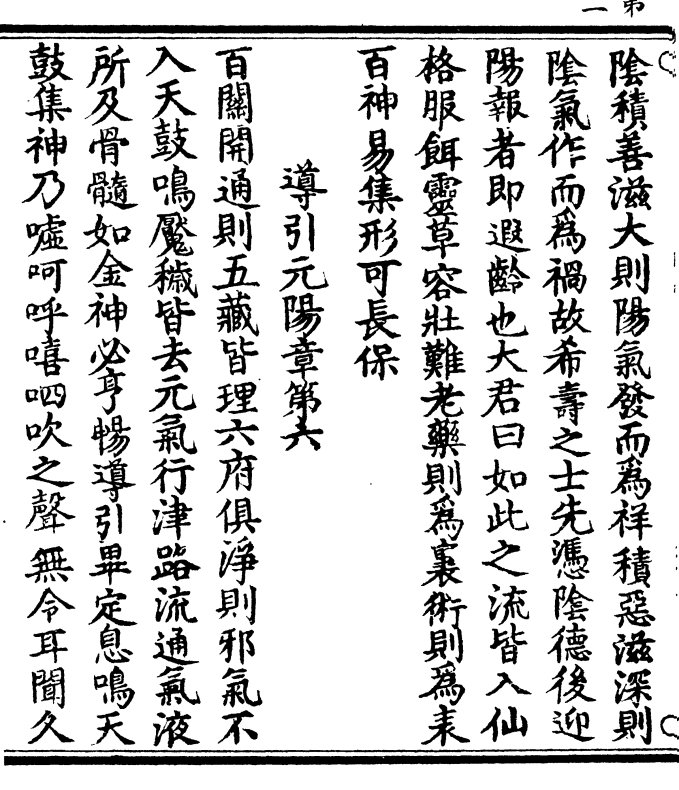 陰積善滋大則陽氣發而爲祥積惡滋深則
陰氣作而爲禍故希壽之士先憑陰德後迎
陽報者即遐齡也大君曰如此之流皆入仙
格服餌靈草容壯難老藥則爲裏術則爲表
百神易集形可長保
導引元陽章第六
百關開通則五藏皆理六府俱淨則邪氣不
入天鼓鳴魘穢皆去元氣行津路流通氣液
所及骨髓如金神必亨暢導引畢定息鳴天
鼓集神乃噓呵呼嘻呬吹之聲無令耳聞久